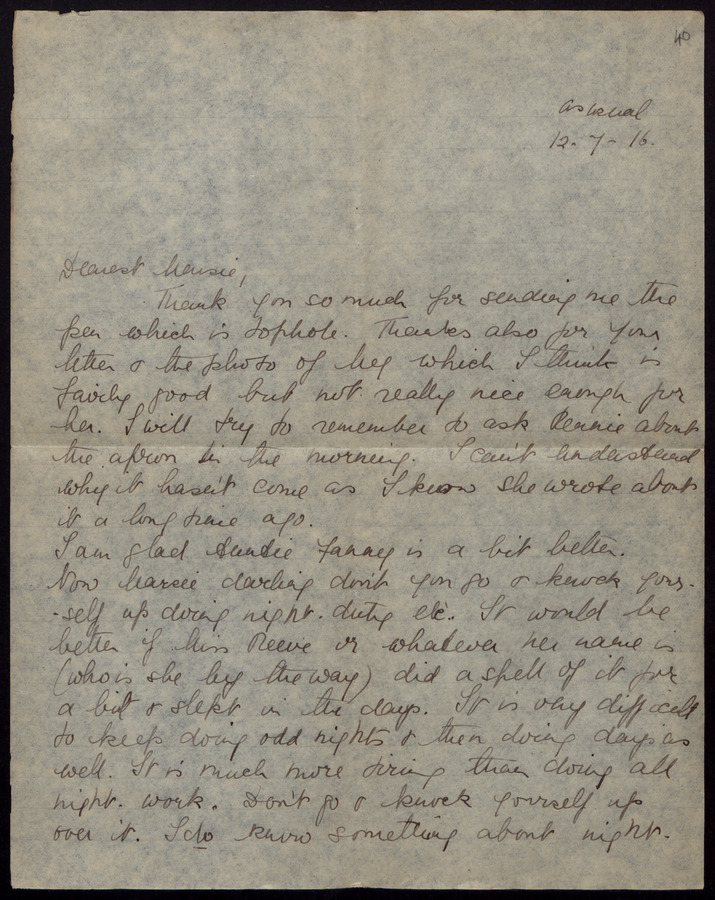 40
as usual
12-7-16.
Dearest Marsie,
Thank you so much for sending me the
pen which is tophole. Thanks also for your
letter & the photo of Meg which I think is
fairly good but not really nice enough for
her. I will try to remember to ask Rennie about
the apron in the morning. I can't understand
why it hasn't come as I know she wrote about
it a long time ago.
I am glad Auntie Fanny is a bit better.
Now Marsie darling don't you go & knock your-
-self up doing night. duty etc. It would be
better if Miss Reeve or whatever her name is
(who is she by the way) did a spell of it for
a bit & slept in the days. It is very difficult
to keep doing odd nights & then doing days as
well. It is much more tiring than doing all
night. work. Don't go & knock yourself up
over it. I do know something about night.